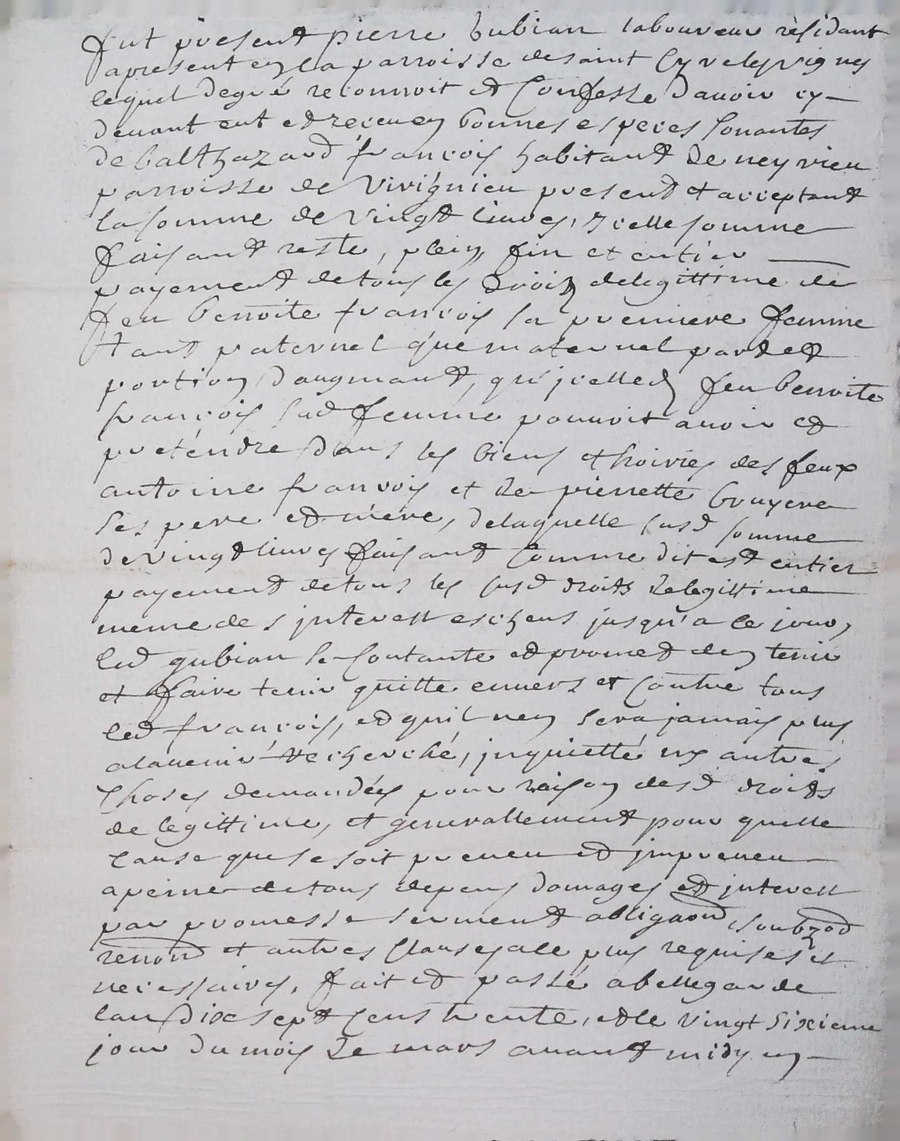 fut present pierre Gubian laboureur résidant
apresent en la parroisse de saint Cyr les vignes
lequel de gré reconnoit et Confesse davoir cy
devant eut et receu en bonnes especes sonantes
de balthazard françois habitant de neyrieu
parroisse de Virignieu present et acceptant
la somme de vingt livres, ycelle somme
faisant reste, plein, fin et entier
payement de tous les droits delegittime de
feu benoite françois sa premiere femme
tant paternel que maternel part et
portion daugmant, qu'jcelled feu benoite
françois sad femme pouvoit avoir et
preténdre dans les biens et hoiries des feux
antoine françois et de pierrette bruyere
ses pere et mére, delaquelle susd somme
de vingt livres faisant comme dit est entier
payement de tous les susd droits delegittime
meme de s jnterest escheus jusqu'a ce jour,
led gubian se Contante et promet den tenir
et faire tenir quitte envers et Contre tous
led françois, et quil nen sera jamais plus
alavenir recherché, jnquietté ny autres
choses demandées pour raison desd droits
de legittime, et generallement pour quelle
cause que se soit preveu et jmpreveu
apeine de tous depens domages et jnterest
par promesse serment obligaon, soubzon
renon et autres clauses a ce plus requises et
necessaires, fait et passé a bellegarde
lan dix sept Cens trente, et le vingt sixieme
jour du mois de mars avant midy en